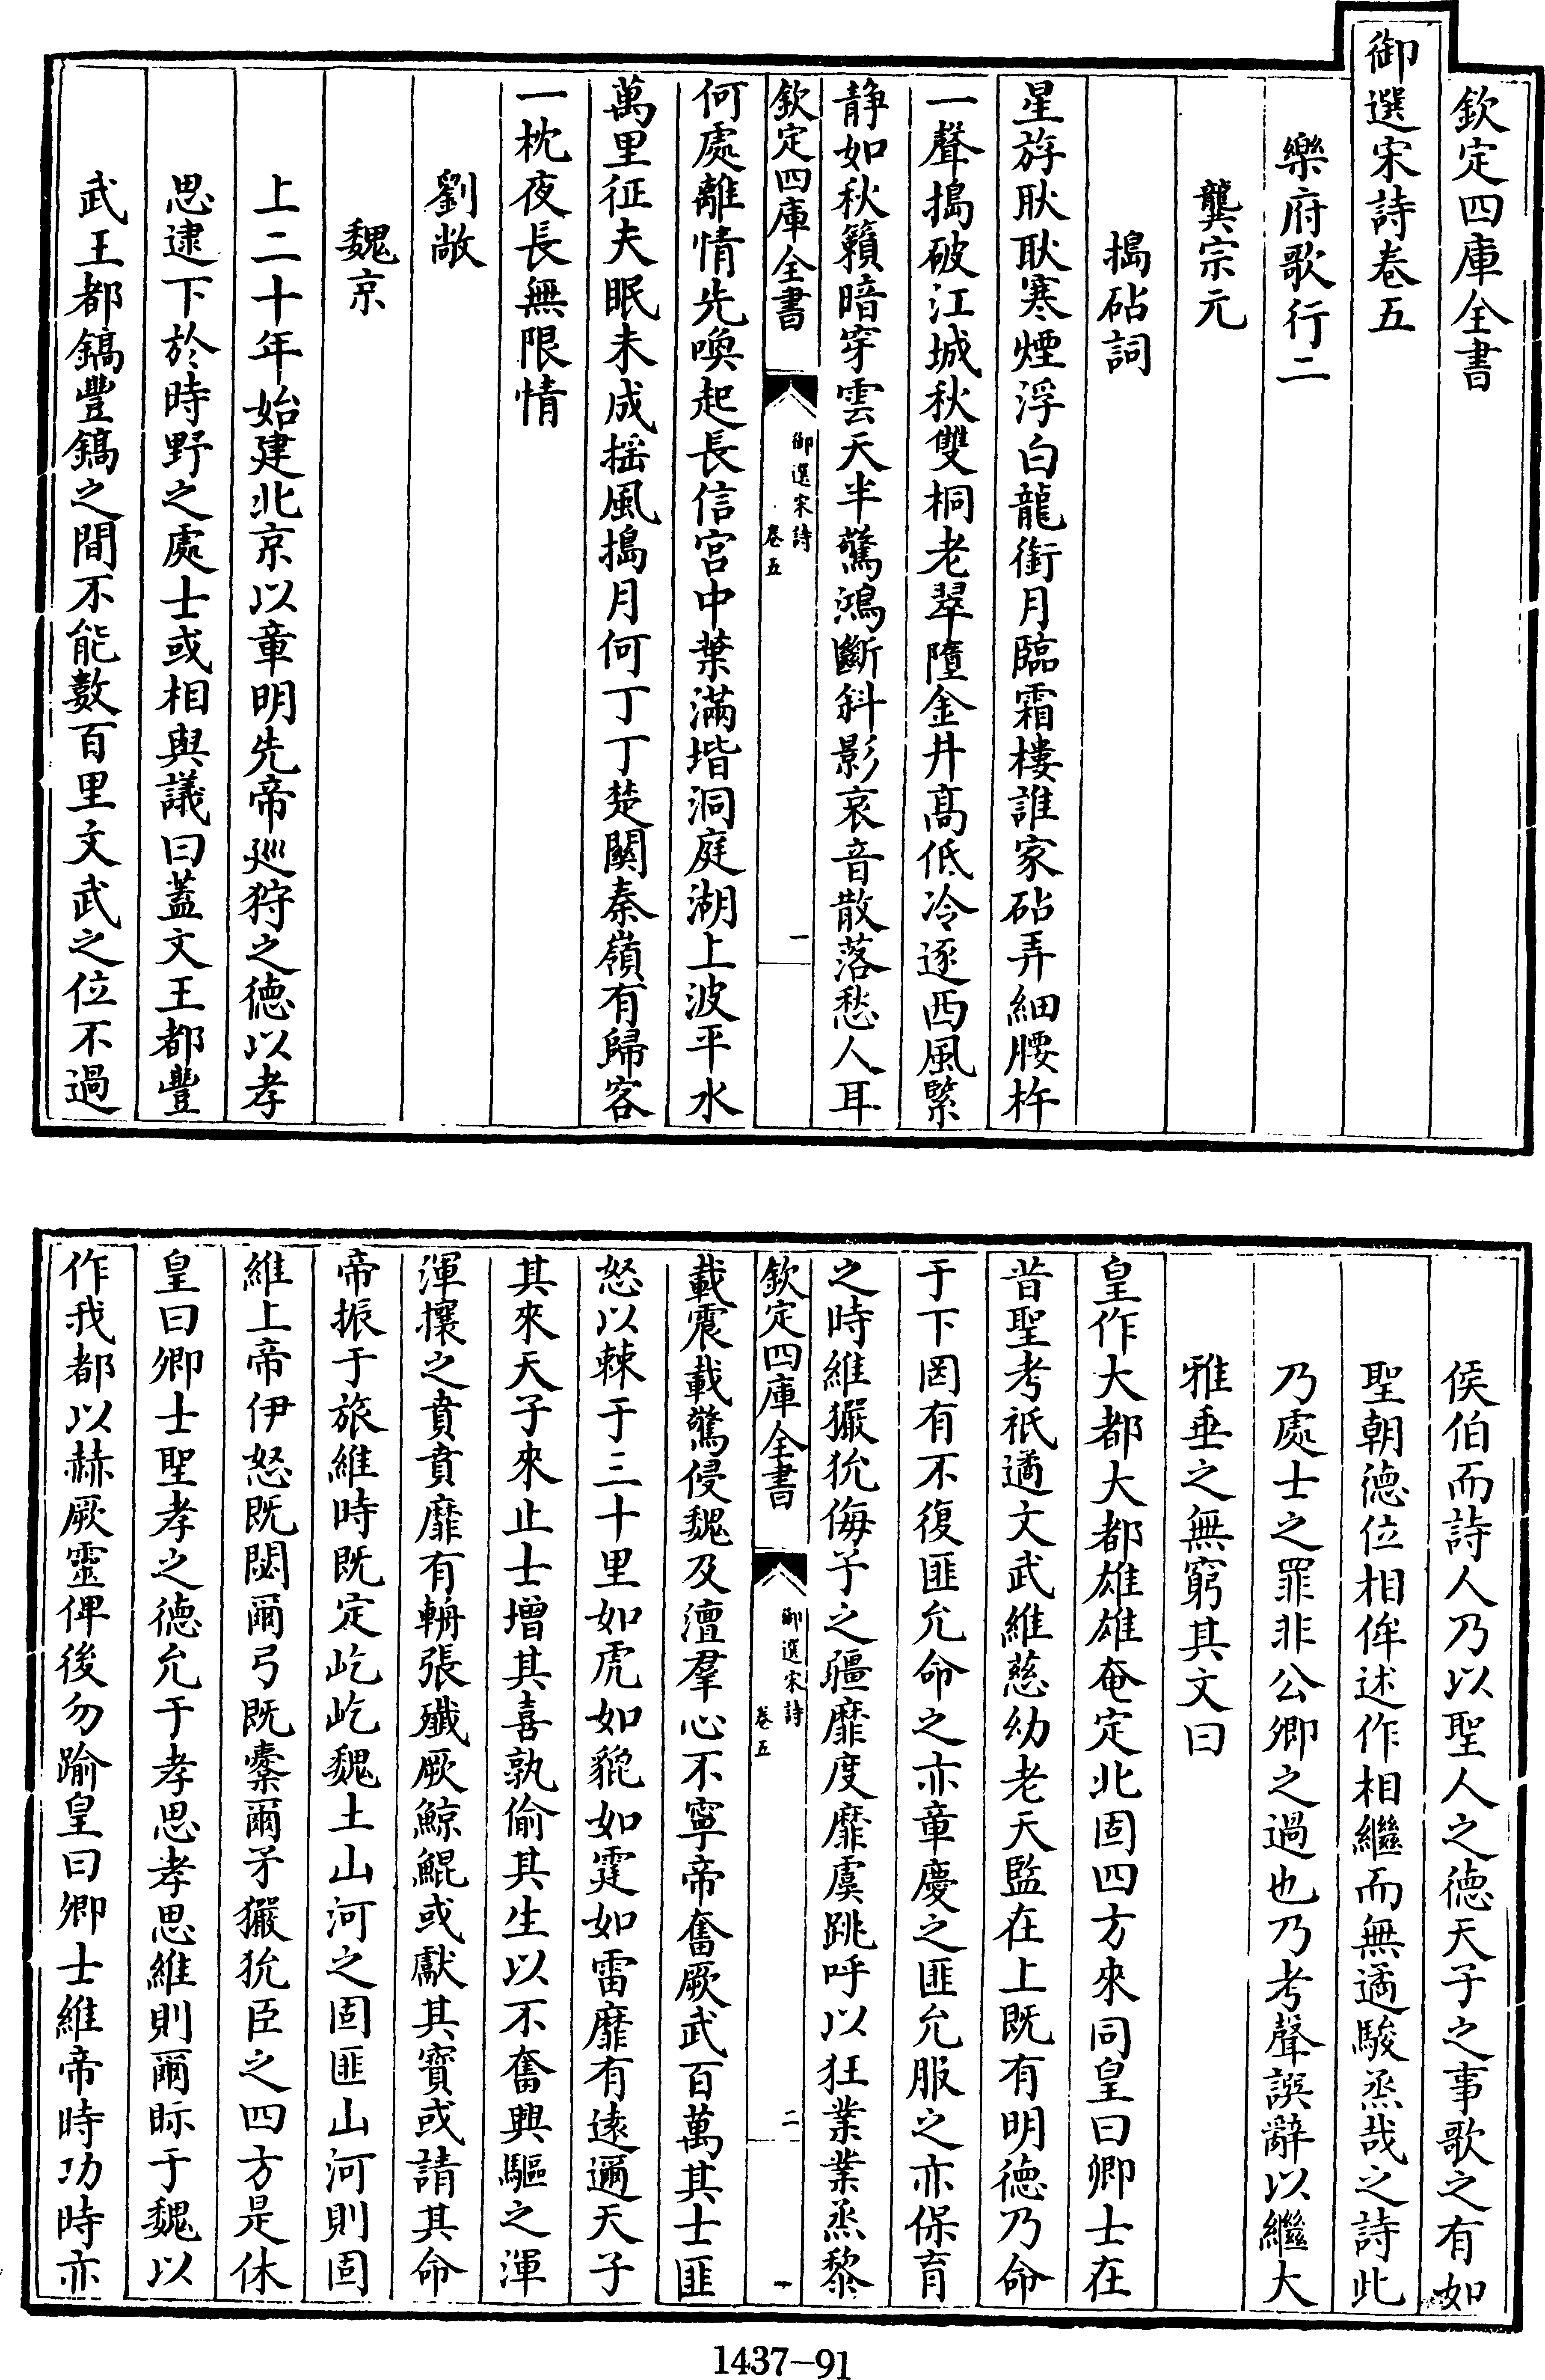 欽定四庫全書
御選宋詩卷五
樂府歌行二
龔宗元
搗砧詞
星斿耿耿寒煙浮白龍銜月臨霜樓誰家砧弄細腰杵
一聲搗破江城秋雙桐老翠墮金井髙低冷逐西風緊
静如秋籟暗穿雲天半驚鴻斷斜影哀音散落愁人耳
欽定四庫全書
御選宋詩
卷五
一
何處離情先喚起長信宮中葉滿堦洞庭湖上波平水
萬里征夫眠未成揺風搗月何丁丁楚關秦嶺有歸客
一枕夜長無限情
劉敞
魏京
上二十年始建北京以章明先帝廵狩之德以孝
思逮下於時野之處士或相與議曰蓋文王都豐
武王都鎬豐鎬之間不能數百里文武之位不過
侯伯而詩人乃以聖人之德天子之事歌之有如
聖朝德位相侔述作相繼而無遹駿烝哉之詩此
乃處士之罪非公卿之過也乃考聲譔辭以繼大
雅垂之無窮其文曰
皇作大都大都雄雄奄定北固四方來同皇曰卿士在
昔聖考祇遹文武維慈幼老天監在上既有明德乃命
于下罔有不復匪允命之亦章慶之匪允服之亦保育
之時維玁狁侮予之疆靡度靡虞跳呼以狂業業烝黎
欽定四庫全書
御選宋詩
卷五
二
載震載驚侵魏及澶羣心不寧帝奮厥武百萬其士匪
怒以棘于三十里如虎如貔如霆如雷靡有遠邇天子
其來天子來止士增其喜孰偷其生以不奮興驅之渾
渾攘之賁賁靡有輈張殱厥鯨鯤或獻其寶或請其命
帝振于旅維時既定屹屹魏土山河之固匪山河則固
維上帝伊怒既閟爾弓既櫜爾矛玁狁臣之四方是休
皇曰卿士聖孝之德允于孝思孝思維則爾眎于魏以
作我都以赫厥靈俾後勿踰皇曰卿士維帝時功時亦
1437-91